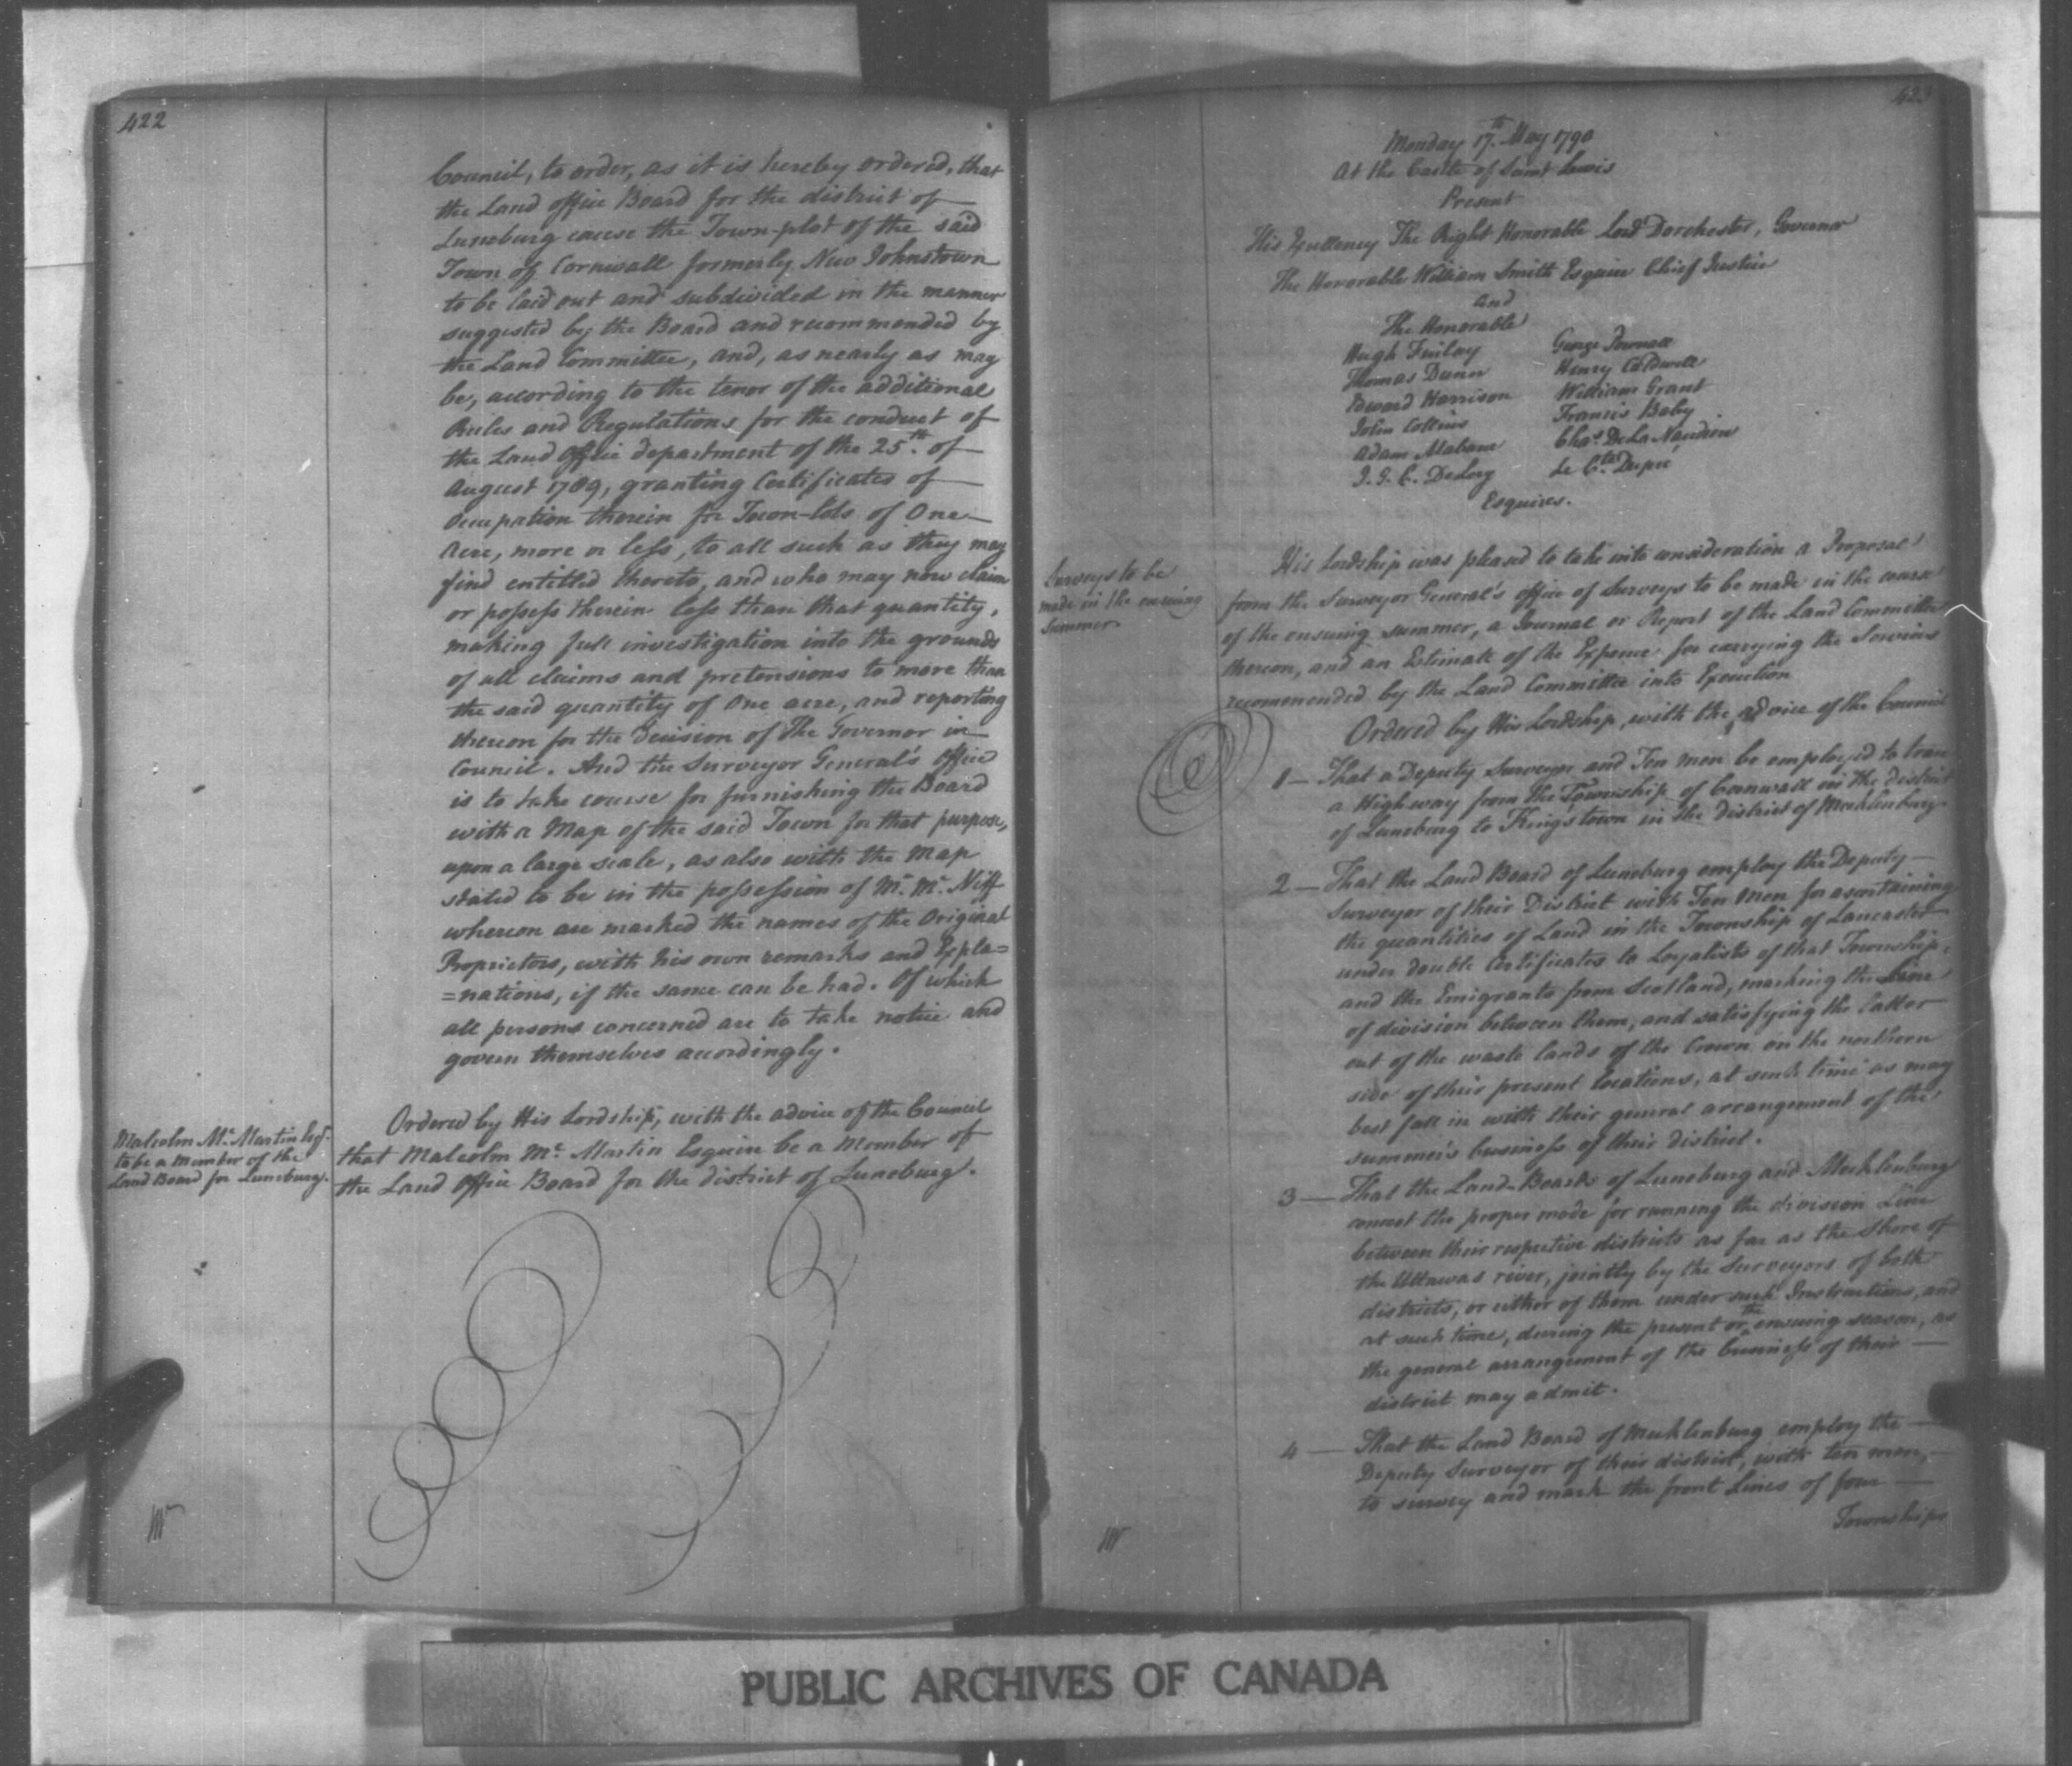 422
Council, to order, as it is hereby ordered, that
the Land office Board for the district of
Luneburg cause the Town-plot of the said
Town of Cornwall formerly New Johnstown
to be laid out and subdivided in the manner
suggested by the Board and recommended by
the Land Committee, and, as nearly as may
be, according to the tenor of the additional
Rules and Regulations for the conduct of
the Land Office department of the 25th. of
August 1789, granting Certificates of
Occupation therein for Town-lots of One
Acre, more or less, to all such as they may
find entitled thereto, and who may now claim
or possess therein less than that quantity,
making full investigation into the grounds
of all claims and pretensions to more than
the said quantity of One acre, and reporting
thereon for the Decision of The Governor in
Council. And the Surveyor General's Office
is to take course for furnishing the Board
with a Map of the said Town for that purpose,
upon a large scale, as also with the Map
stated to be in the possession of Mr. Mc. Niff
whereon are marked the names of the Original
Proprietors, with his own remarks and Expla=
=nations, if the same can be had. Of which
all persons concerned are to take notice and
govern themselves accordingly.
Malcolm Mc. Martin Esqr.
to be a Member of the
Land Board for Luneburg.
Ordered by His Lordship, with the advice of the Council
that Malcolm Mc. Martin Esquire be a Member of
the Land Office Board for the district of Luneburg.
423
Monday 17th. May 1790
At the Castle of Saint Lewis
Present
His Excellency The Right Honorable Lord Dorchester, Governor
The Honorable William Smith Esquire Chief Justice
and
The Honorable
Hugh Finlay
Thomas Dunn
Edward Harrison
John Collins
Adam Mabane
J. G. C. Delery
George Pownall
Henry Caldwell
William Grant
Francis Baby
Chas. De La Naudiere
Le Cte. Dupré
Esquires.
Surveys to be
made in the ensuing
Summer.
His Lordship was pleased to take into consideration a Proposal
from the Surveyor General's office of Surveys to be made in the course
of the ensuing summer, a Journal or Report of the Land Committee
thereon, and an Estimate of the Expence for carrying the Services
recommended by the Land Committee into Execution
Ordered by His Lordship, with the advice of the Council
1 — That a Deputy Surveyor and Ten men be employed to trace
a Highway from the Township of Cornwall in the district
of Luneburg to Kingstown in the district of Mecklenburg.
2 — That the Land Board of Luneburg employ the Deputy —
Surveyor of their District with Ten Men for ascertaining
the quantities of Land in the Township of Lancaster
under double Certificates to Loyalists of that Township,
and the Emigrants from Scotland, marking the Line
of division between them, and satisfying the latter
out of the waste lands of the Crown on the northern
side of their present locations, at such time as may
best fall in with their general arrangement of the
summer's business of their district.
3 — That the Land-Boards of Luneburg and Mecklenburg
concert the proper mode for running the division Line
between their respective districts as far as the Shore of
the Uttawas river, jointly by the Surveyors of both
districts, or either of them under such Instructions, and
at such time, during the present or the ensuing season, as
the general arrangement of the business of their —
district may admit.
4 — That the Land Board of Mecklenburg employ the —
Deputy Surveyor of their district, with ten men, —
to survey and mark the front Lines of four —
Townships
PUBLIC ARCHIVES OF CANADA